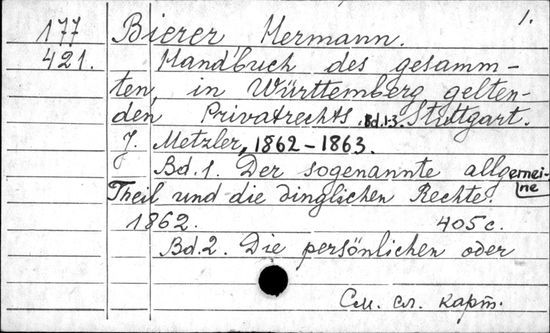 1.
177 Bierer Hermann.
421. Handbuch des gesamm-
ten, in Württemberg gelten-
den Privatrechts. Bd.1-3. Stuttgart.
J. Metzler, 1862-1863.
Bd. 1. Der sogenannte allgemei-
ne
Theil und die dinglichen Rechte.
1862. 405c.
Bd.2. Die persönlichen oder
См. сл. карт.